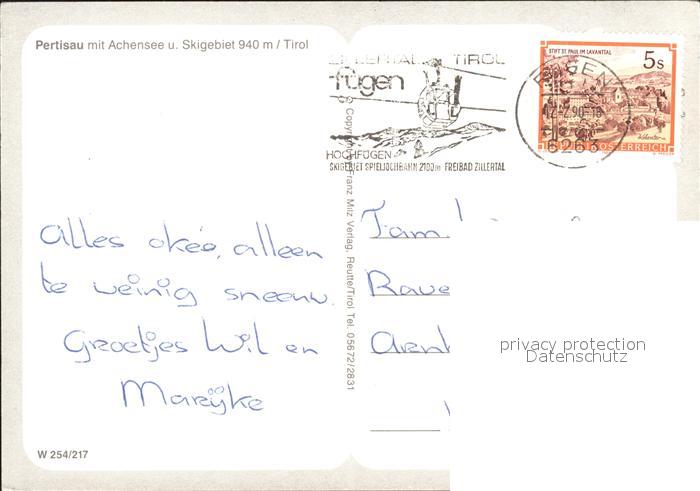 Pertisau mit Achensee u. Skigebiet 940 m / Tirol
Alles okée, alleen
te weinig sneeuw.
Groetjes Wil en
Marijke
W 254/217
Copyright Franz Milz Verlag, Reutte/Tirol Tel. 05672/2831
ZILLERTAL TIROL
fügen
HOCHFÜGEN
SKIGEBIET SPIELJOCHBAHN 2100m FREIBAD ZILLERTAL
6263
STIFT ST. PAUL IM LAVANTTAL
5s
ÖSTERREICH
Fam.
Rave
Arnh
privacy protection
Datenschutz